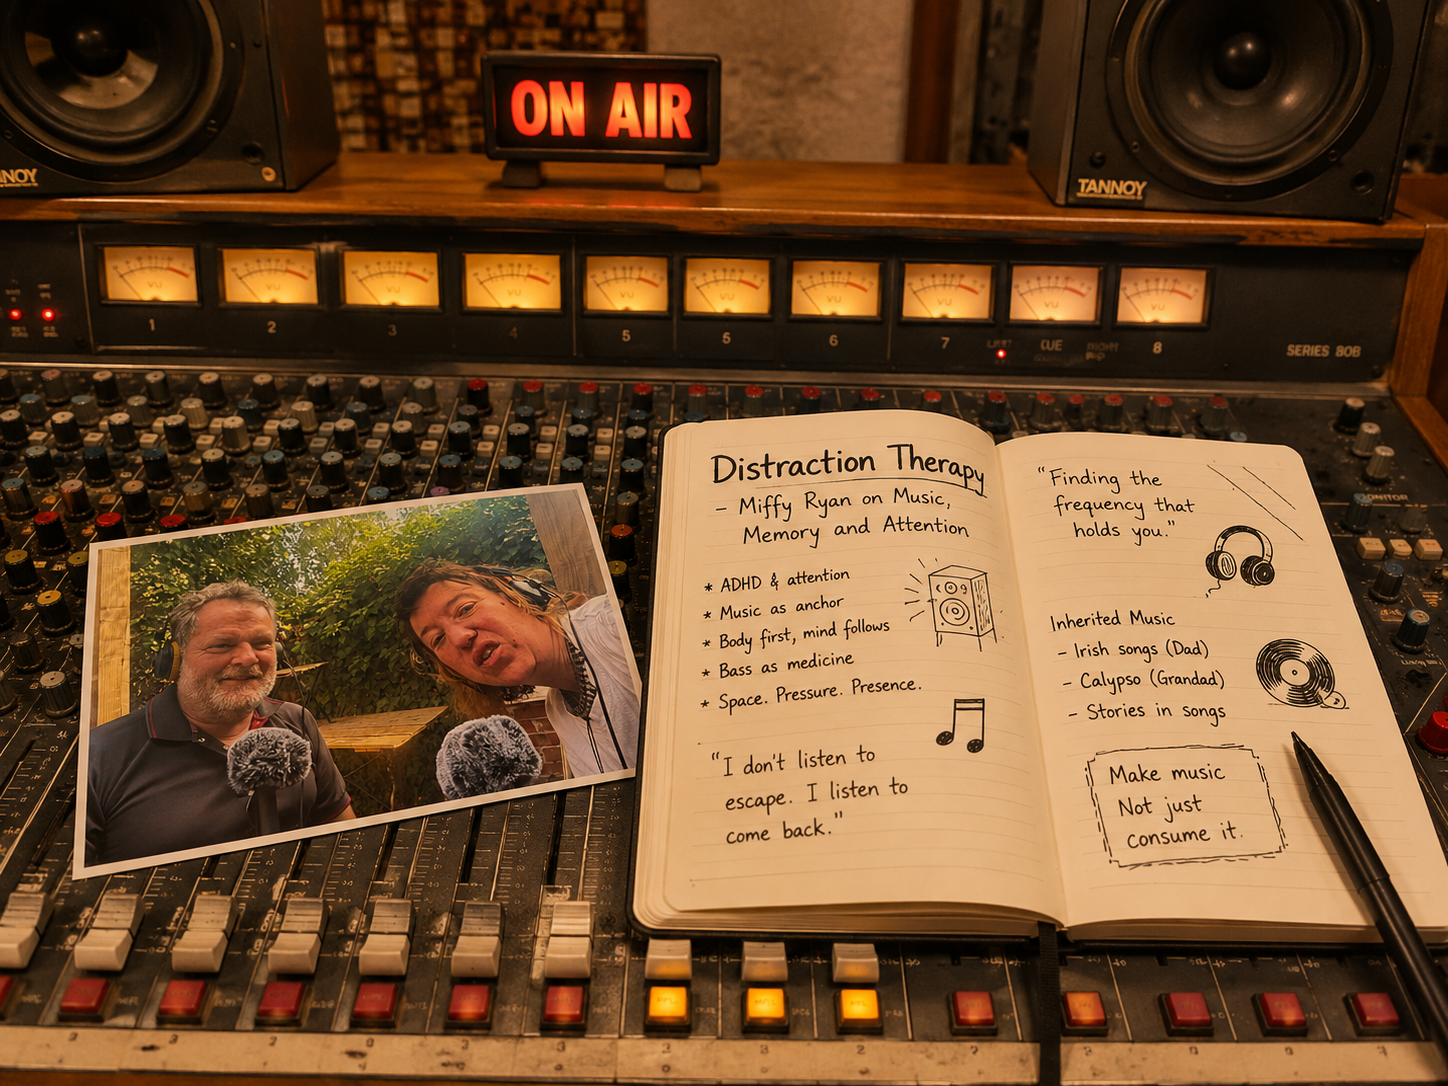 ON AIR
NOY
TANNOY
VU
VU
VU
VU
VU
VU
VU
VU
VU
VU
1
2
3
4
5
5
6
7
CUE
8
SERIES 80B
Distraction Therapy
– Miffy Ryan on Music,
Memory and Attention
* ADHD & attention
* Music as anchor
* Body first, mind follows
* Bass as medicine
* Space. Pressure. Presence.
"I don't listen to
escape. I listen to
come back."
"Finding the
frequency that
holds you."
Inherited Music
– Irish songs (Dad)
– Calypso (Grandad)
– Stories in songs
Make music
Not just
consume it.